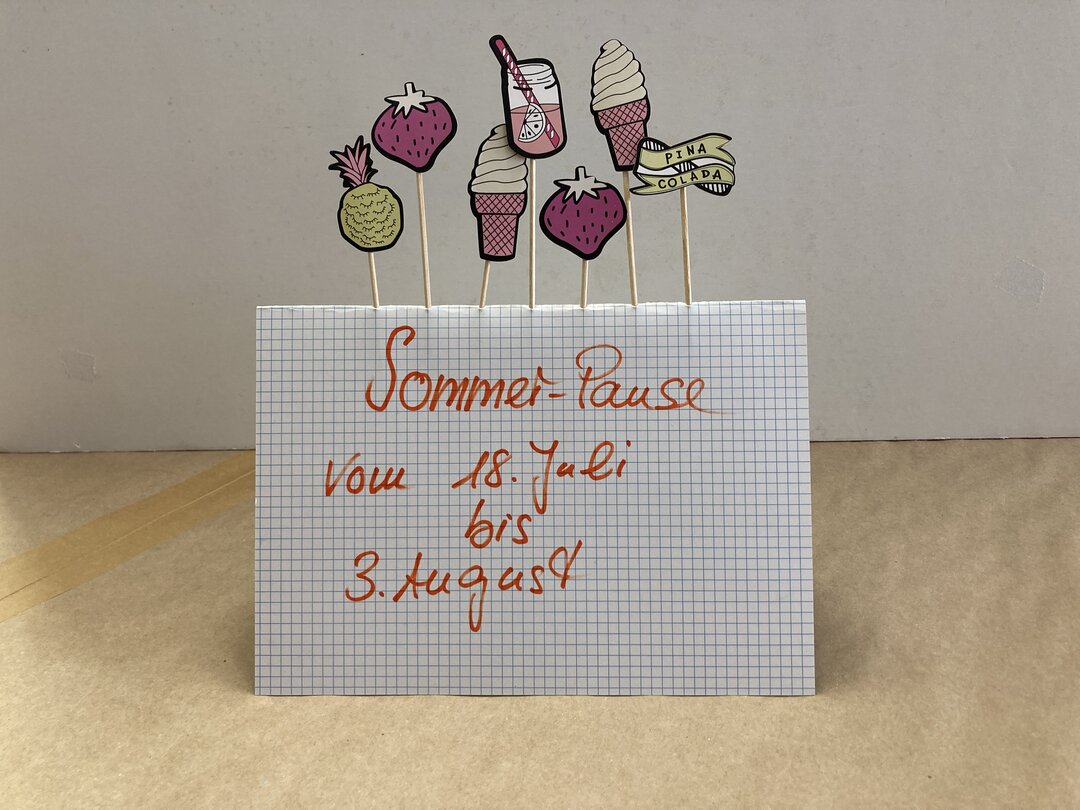 PINA
COLADA
Sommer-Pause
vom 18. Juli
bis
3. August